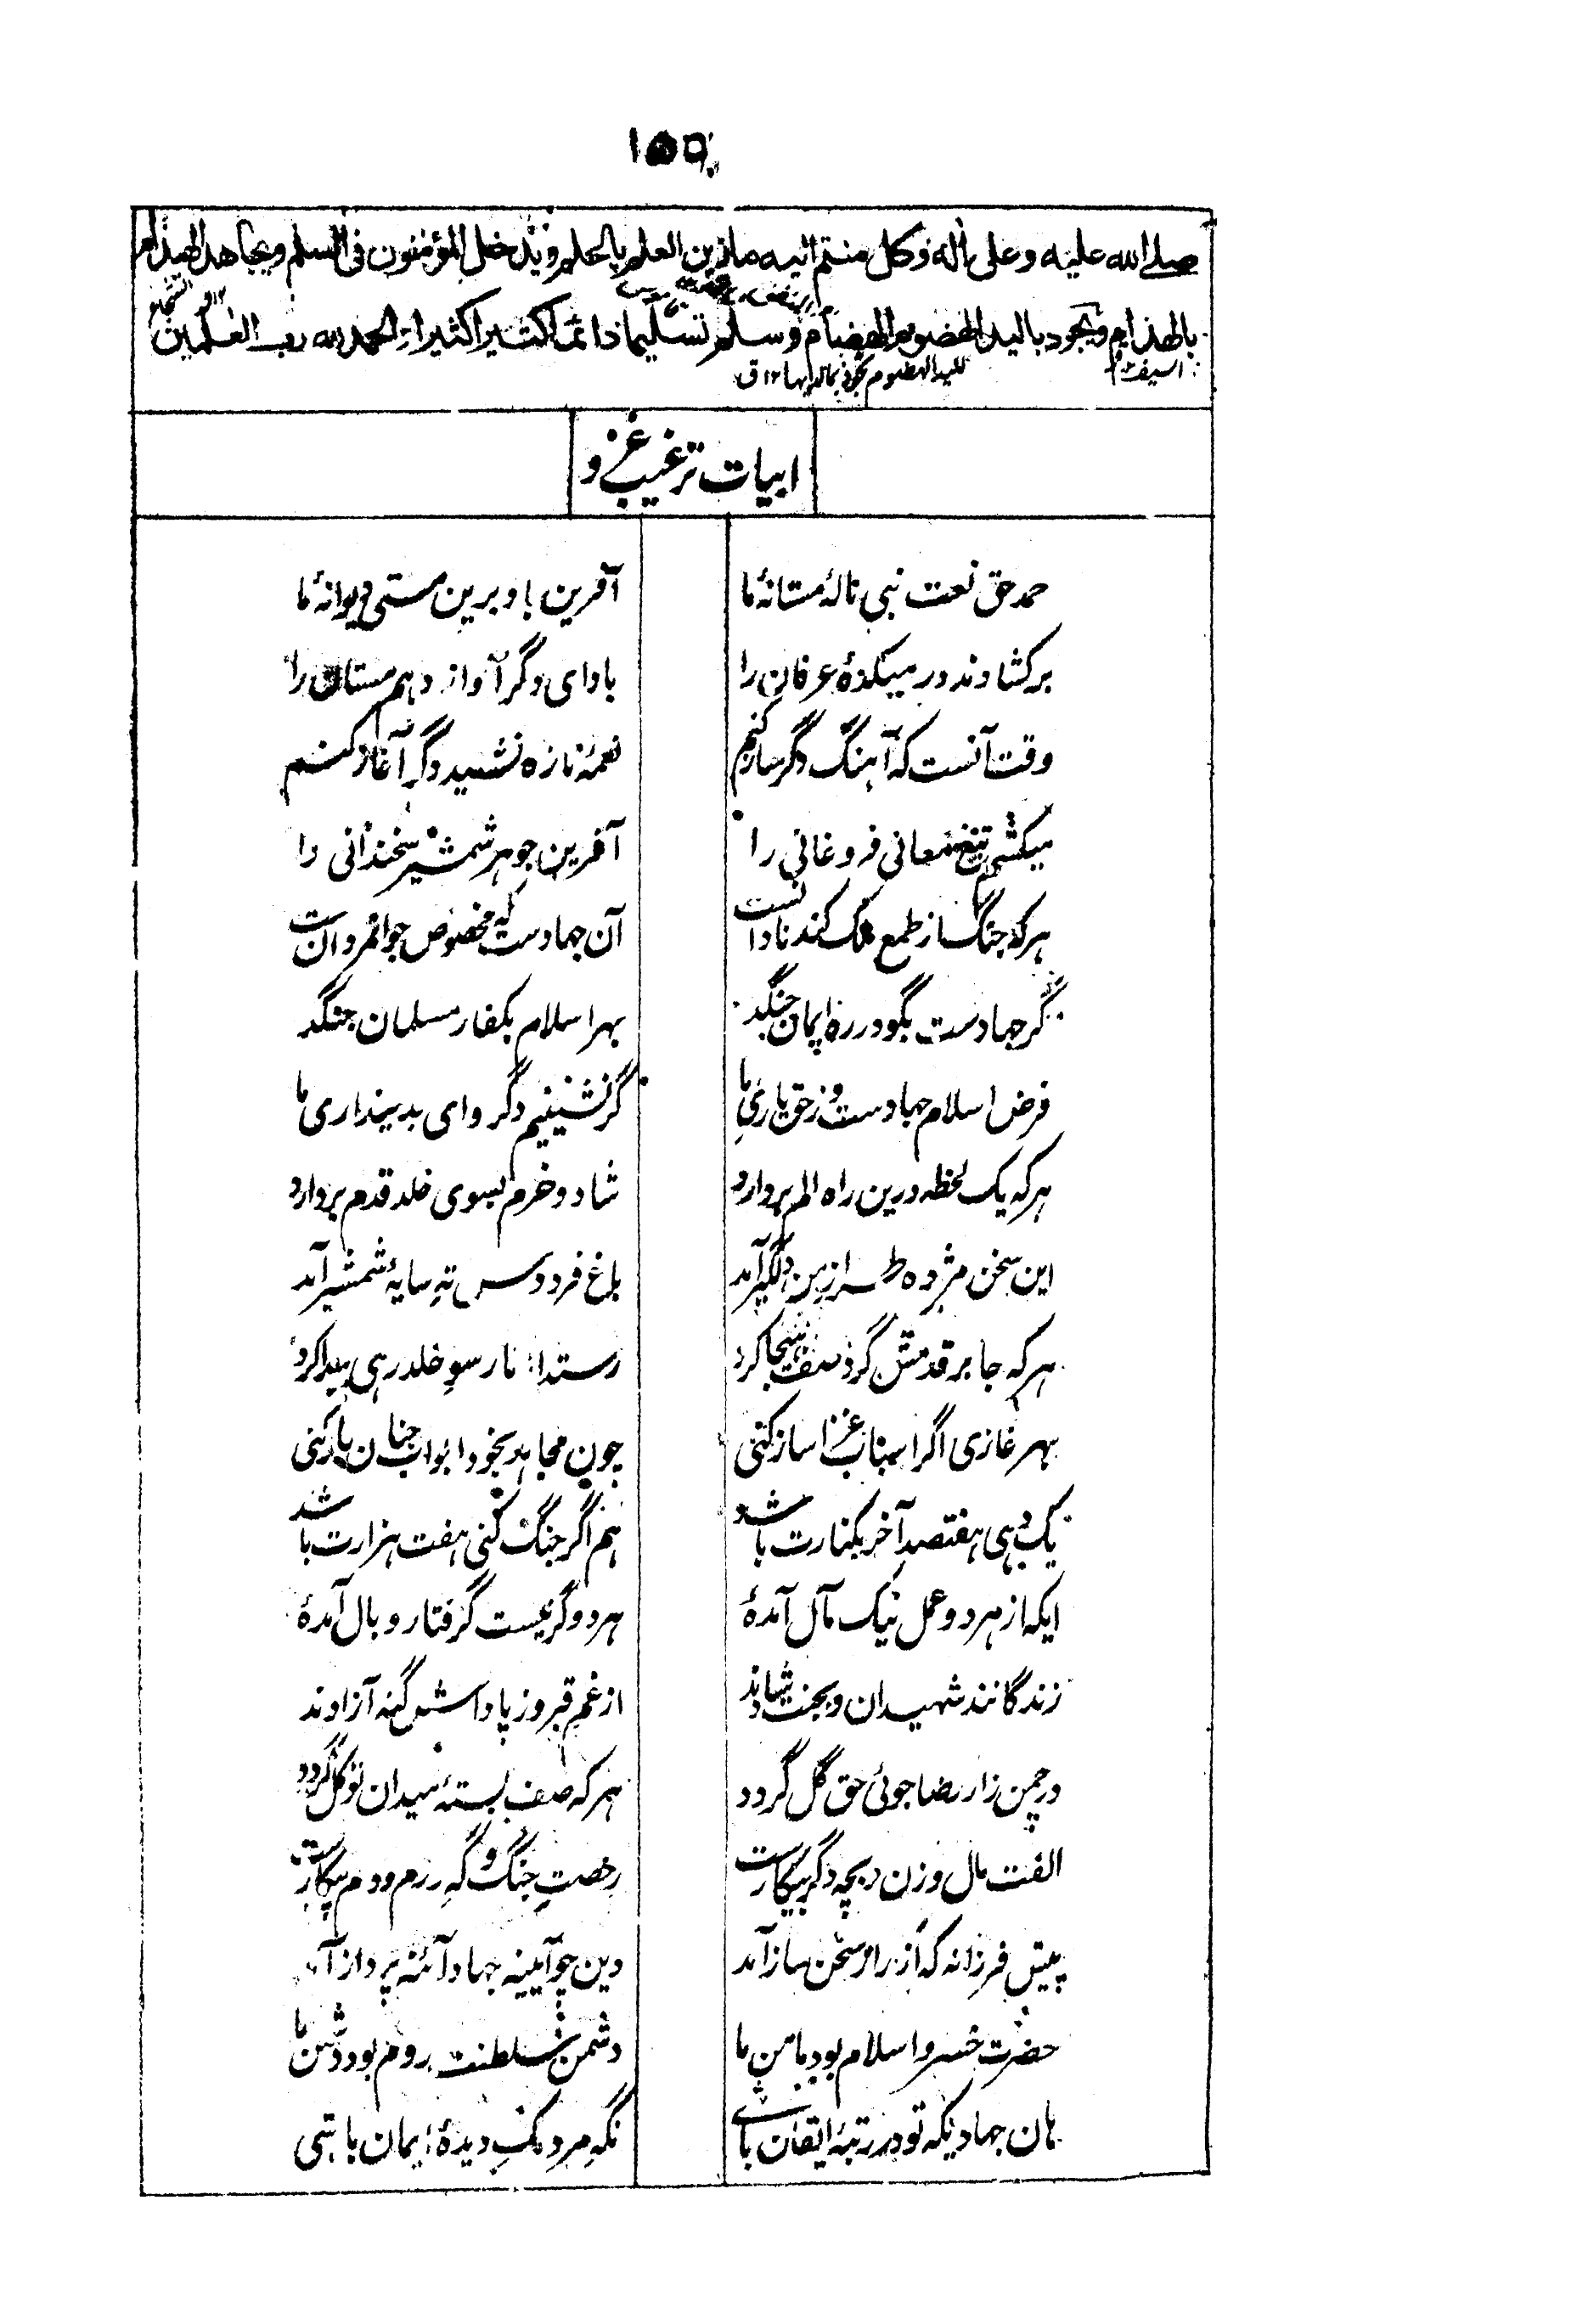 صلى الله عليه وعلى آله وكل منتم اليه ما زين العلم بالحلم ويدخل المؤمنون فى السلم ويجاهد الهذام
بالهذام ويجود باليد الهضوم الهضام وسلم تسليما دائما كثيرا كثيرا والحمد لله رب العلمين
ابیات ترغیب غزو
حمد حق نعت نبی نالهٔ مستانهٔ ما
آفرین باد برین مستی دیوانهٔ ما
برکشادند در میکدهٔ عرفان را
بادای دگر آواز دهم مستان را
وقت آنست که آهنگ دگر ساز کنم
نغمهٔ تازه نشید دگر آغاز کنم
میکشم تیغ معانی فروغانی را
آفرین جوهر شمشیر سخندانی را
هر که جنگ از طمع ملک کند نادانست
آن جهادست که مخصوص جوانمردانست
گر جهادست بگو در ره ایمان جنگد
بهر اسلام بکفار مسلمان جنگد
فرض اسلام جهادست و ز حق یاری ما
گر نشینیم دگر وای بدینداری ما
هر که یک لحظه درین راه الم بردارد
شاد و خرم بسوی خلد قدم بردارد
این سخن مژده طراز من دلگیر آمد
باغ فردوس ته سایهٔ شمشیر آمد
هر که جا بر قدمش گرد صف هیجا کرد
رست از نار سوِ خلد رهی پیدا کرد
بهر غازی اگر اسباب غزا ساز کنی
چون مجاهد بخود ابواب جنان باز کنی
یک دهی هفتصد آخر بکنارت باشد
هم اگر جنگ کنی هفت هزارت باشد
ایکه از هر دو عمل نیک مآل آمدهٔ
هر دو گر نیست گرفتار وبال آمدهٔ
زندگانند شهیدان و بجنت شادند
از غم قبر و ز پاداش گنه آزادند
در چمن زار رضا جوئی حق گل گردد
هر که صف بستهٔ میدان توکل گردد
الفت مال و زن و بچه دگر بیکارست
رخصتِ جنگ و گهِ رزم و دم پیکارست
پیش فرزانه که از راز سخن ساز آمد
دین چو آیینه جهاد آئنه پرداز آمد
حضرت خسرو اسلام بود مامن ما
دشمن سلطنت روم بود دشمن ما
هان جهادیکه تو در رتبهٔ ایقان باشی
نگه مردمکِ دیدهٔ ایمان باشی